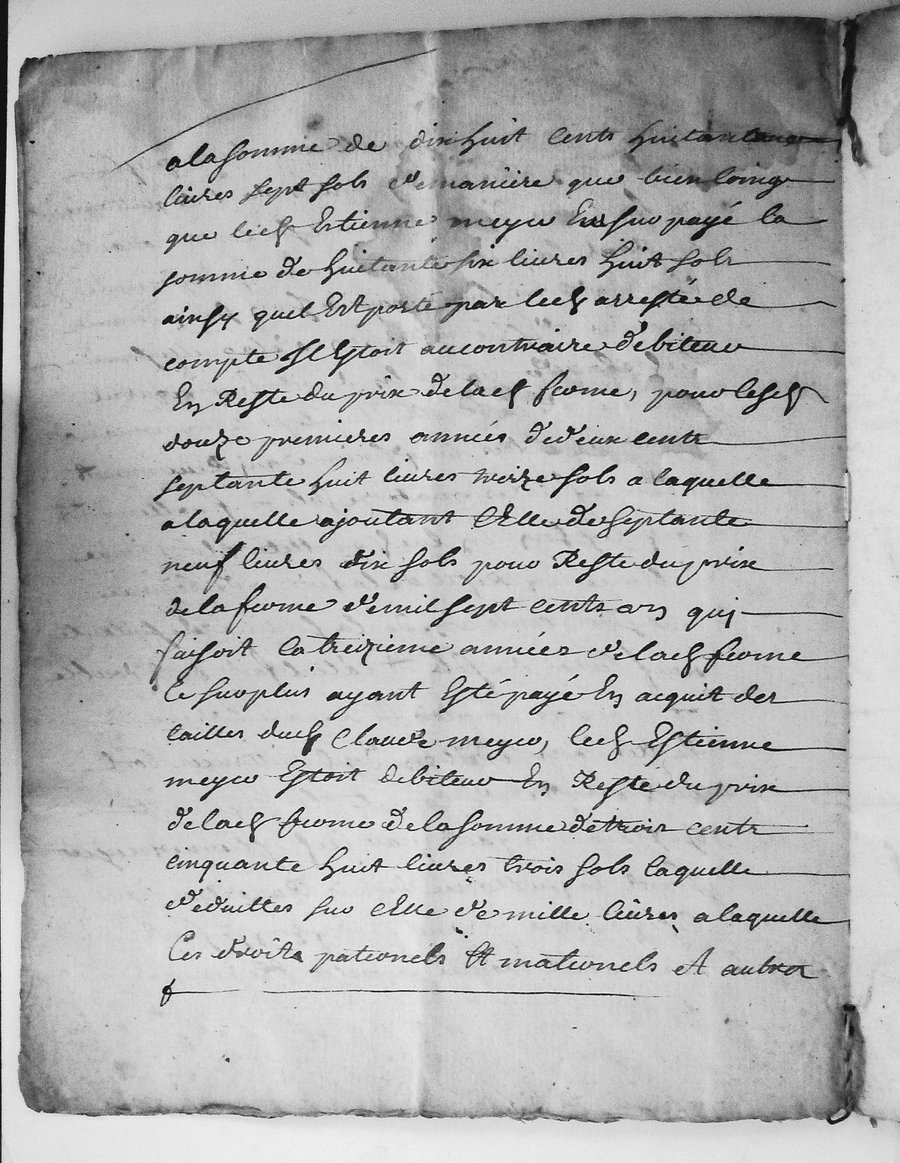 a la somme de dix huit cents huitante
livres sept sols de maniere que bien loing
que led Estienne meyer Eu surpayé la
somme de huitante six livres huit sols
ainsy quel Est porté par led arresté de
compte Il Estoit au contraire debiteur
En Reste du prix de lad ferme, pour lesd
douze premieres années de deux cents
septante huit livres treize sols a laquelle
a laquelle ajoutant Celle de septante
neuf livres dix sols pour Reste du prix
de la ferme de mil sept cents un qui
faisoit la treizieme années de lad ferme
Le surplus ayant Esté payé En acquit des
tailles dud Claude meyer, led Estienne
meyer Estoit debiteur En Reste du prix
de lad ferme de la somme de trois cents
cinquante huit livres trois sols laquelle
deduittes sur Celle de mille livres a laquelle
Ces droits paternels Et maternels Et autres